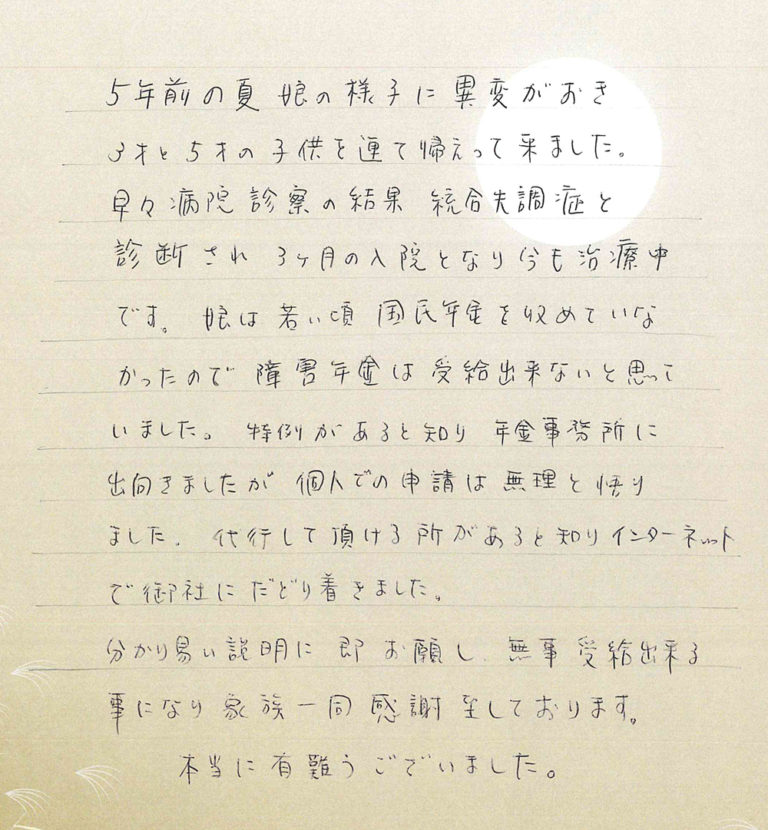 5年前の夏 娘の様子に異変がおき
3才と5才の子供を連て帰えって来ました。
早々病院診察の結果 統合失調症と
診断され 3ヶ月の入院となり今も治療中
です。娘は若い頃 国民年金を収めていな
かったので 障害年金は受給出来ないと思って
いました。特例があると知り 年金事務所に
出向きましたが 個人での申請は無理と悟り
ました。代行して頂ける所があると知りインターネット
で御社にだどり着きました。
分かり易い説明に 即お願し、無事受給出来る
事になり家族一同感謝至しております。
本当に有難うございました。